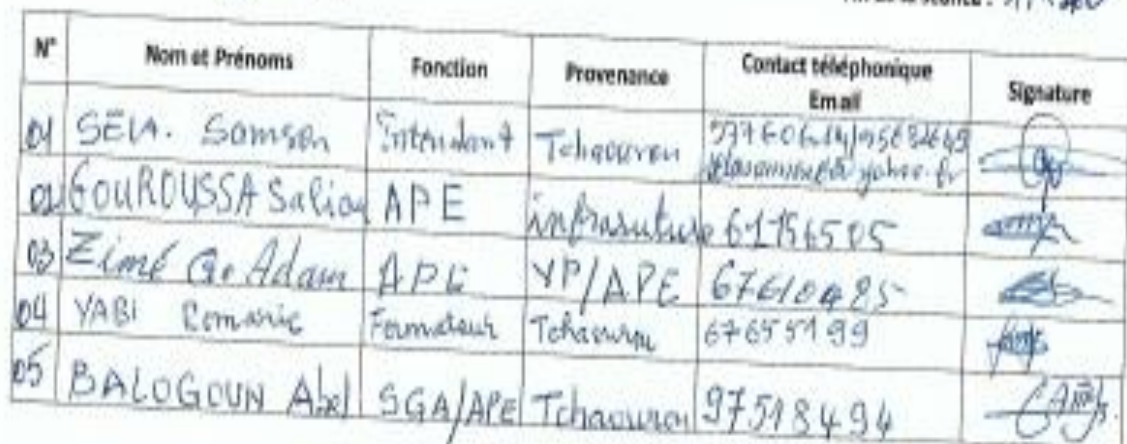 Fin de la séance :
N° Nom et Prénoms Fonction Provenance Contact téléphonique Email Signature
01 SĒLA. Samson Intendant Tchaourou
02 GOUROUSSA Saliou APE infrasuture 61156505
03 Zimé Go Adam APE VP/APE 67610485
04 YABI Romaric Formateur Tchaourou 67655199
05 BALOGOUN Abel SGA/APE Tchaourou 97518494